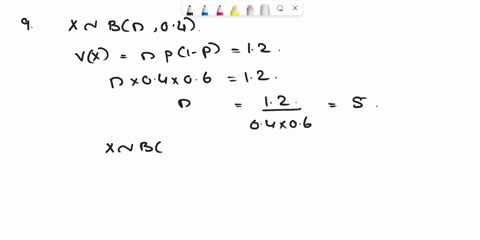 9. X ~ B(n, 0.4).
V(X) = n p(1-p) = 1.2.
n × 0.4 × 0.6 = 1.2.
n = 1.2. / 0.4×0.6 = 5.
X ~ B(